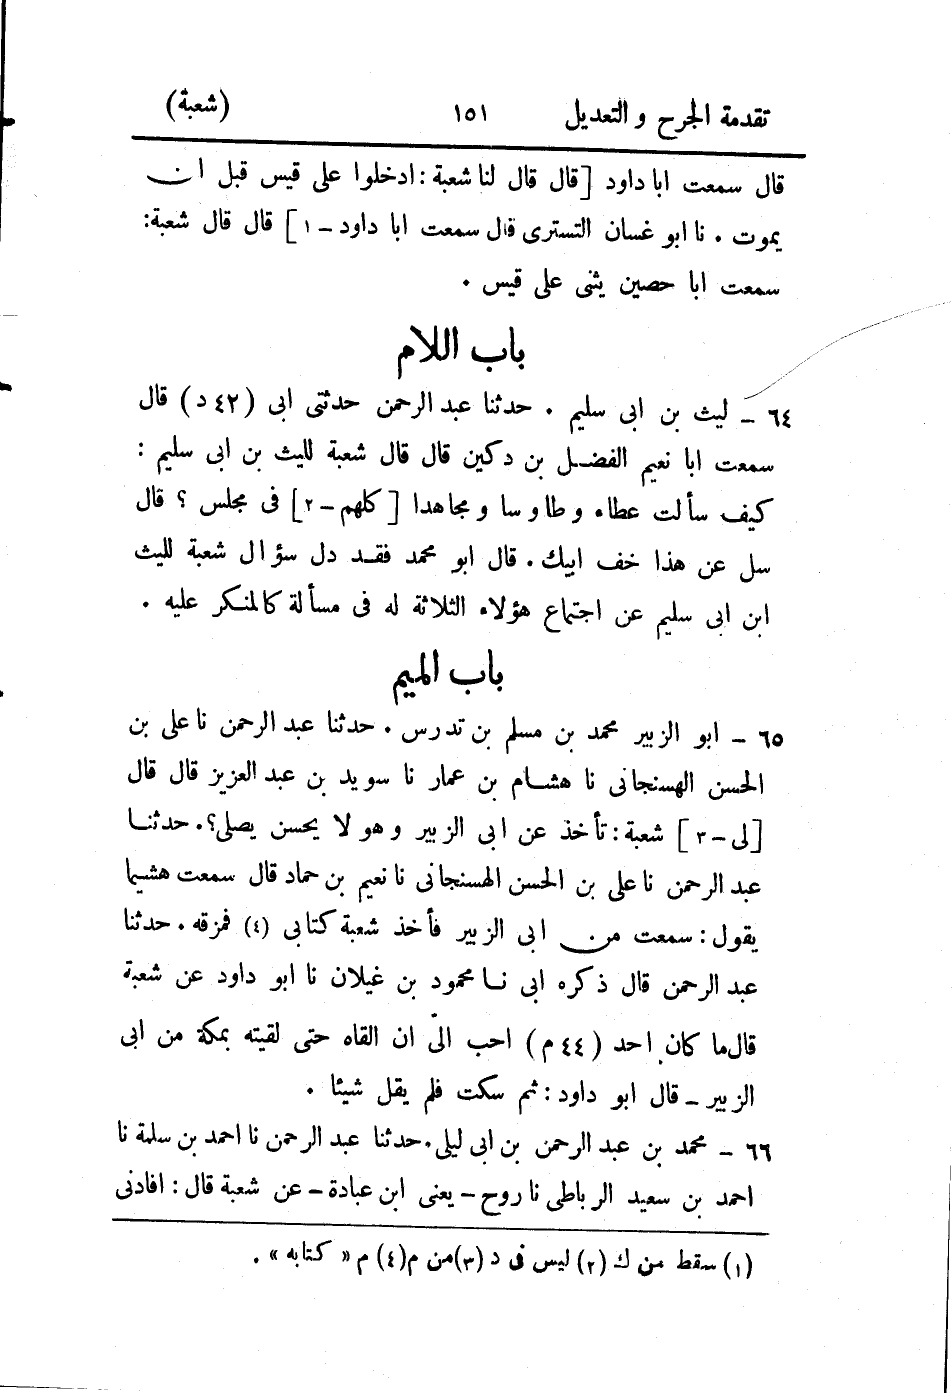 تقدمة الجرح و التعديل ١٥١ (شعبة)
قال سمعت ابا داود [قال قال لنا شعبة : ادخلوا على قيس قبل ان
يموت . نا ابو غسان التسترى قال سمعت ابا داود - ١] قال قال شعبة:
سمعت ابا حصين يثنى على قيس .
باب اللام
٦٤ - ليث بن ابى سليم . حدثنا عبد الرحمن حدثنى ابى (٤٢ د) قال
سمعت ابا نعيم الفضل بن دكين قال قال شعبة لليث بن ابى سليم :
كيف سألت عطاء و طاوسا و مجاهدا [كلهم - ٢] فى مجلس ؟ قال
سل عن هذا خف ابيك . قال ابو محمد فقد دل سؤال شعبة لليث
ابن ابى سليم عن اجتماع هؤلاء الثلاثة له فى مسألة كالمنكر عليه .
باب الميم
٦٥ - ابو الزبير محمد بن مسلم بن تدرس . حدثنا عبد الرحمن نا على بن
الحسن الهسنجانى نا هشام بن عمار نا سويد بن عبد العزيز قال قال
[لى - ٣] شعبة : تأخذ عن ابى الزبير و هو لا يحسن يصلى؟. حدثنا
عبد الرحمن نا على بن الحسن الهسنجانى نا نعيم بن حماد قال سمعت هشيما
يقول : سمعت من ابى الزبير فأخذ شعبة كتابى (٤) فمزقه . حدثنا
عبد الرحمن قال ذكره ابى نا محمود بن غيلان نا ابو داود عن شعبة
قال ما كان احد (٤٤ م) احب الىّ ان القاه حتى لقيته بمكة من ابى
الزبير - قال ابو داود : ثم سكت فلم يقل شيئا .
٦٦ - محمد بن عبد الرحمن بن ابى ليلى . حدثنا عبد الرحمن نا احمد بن سلمة نا
احمد بن سعيد الرباطى نا روح - يعنى ابن عبادة - عن شعبة قال : افادنى
(١) سقط من ك (٢) ليس فى د (٣) من م (٤) م « كتابه » .